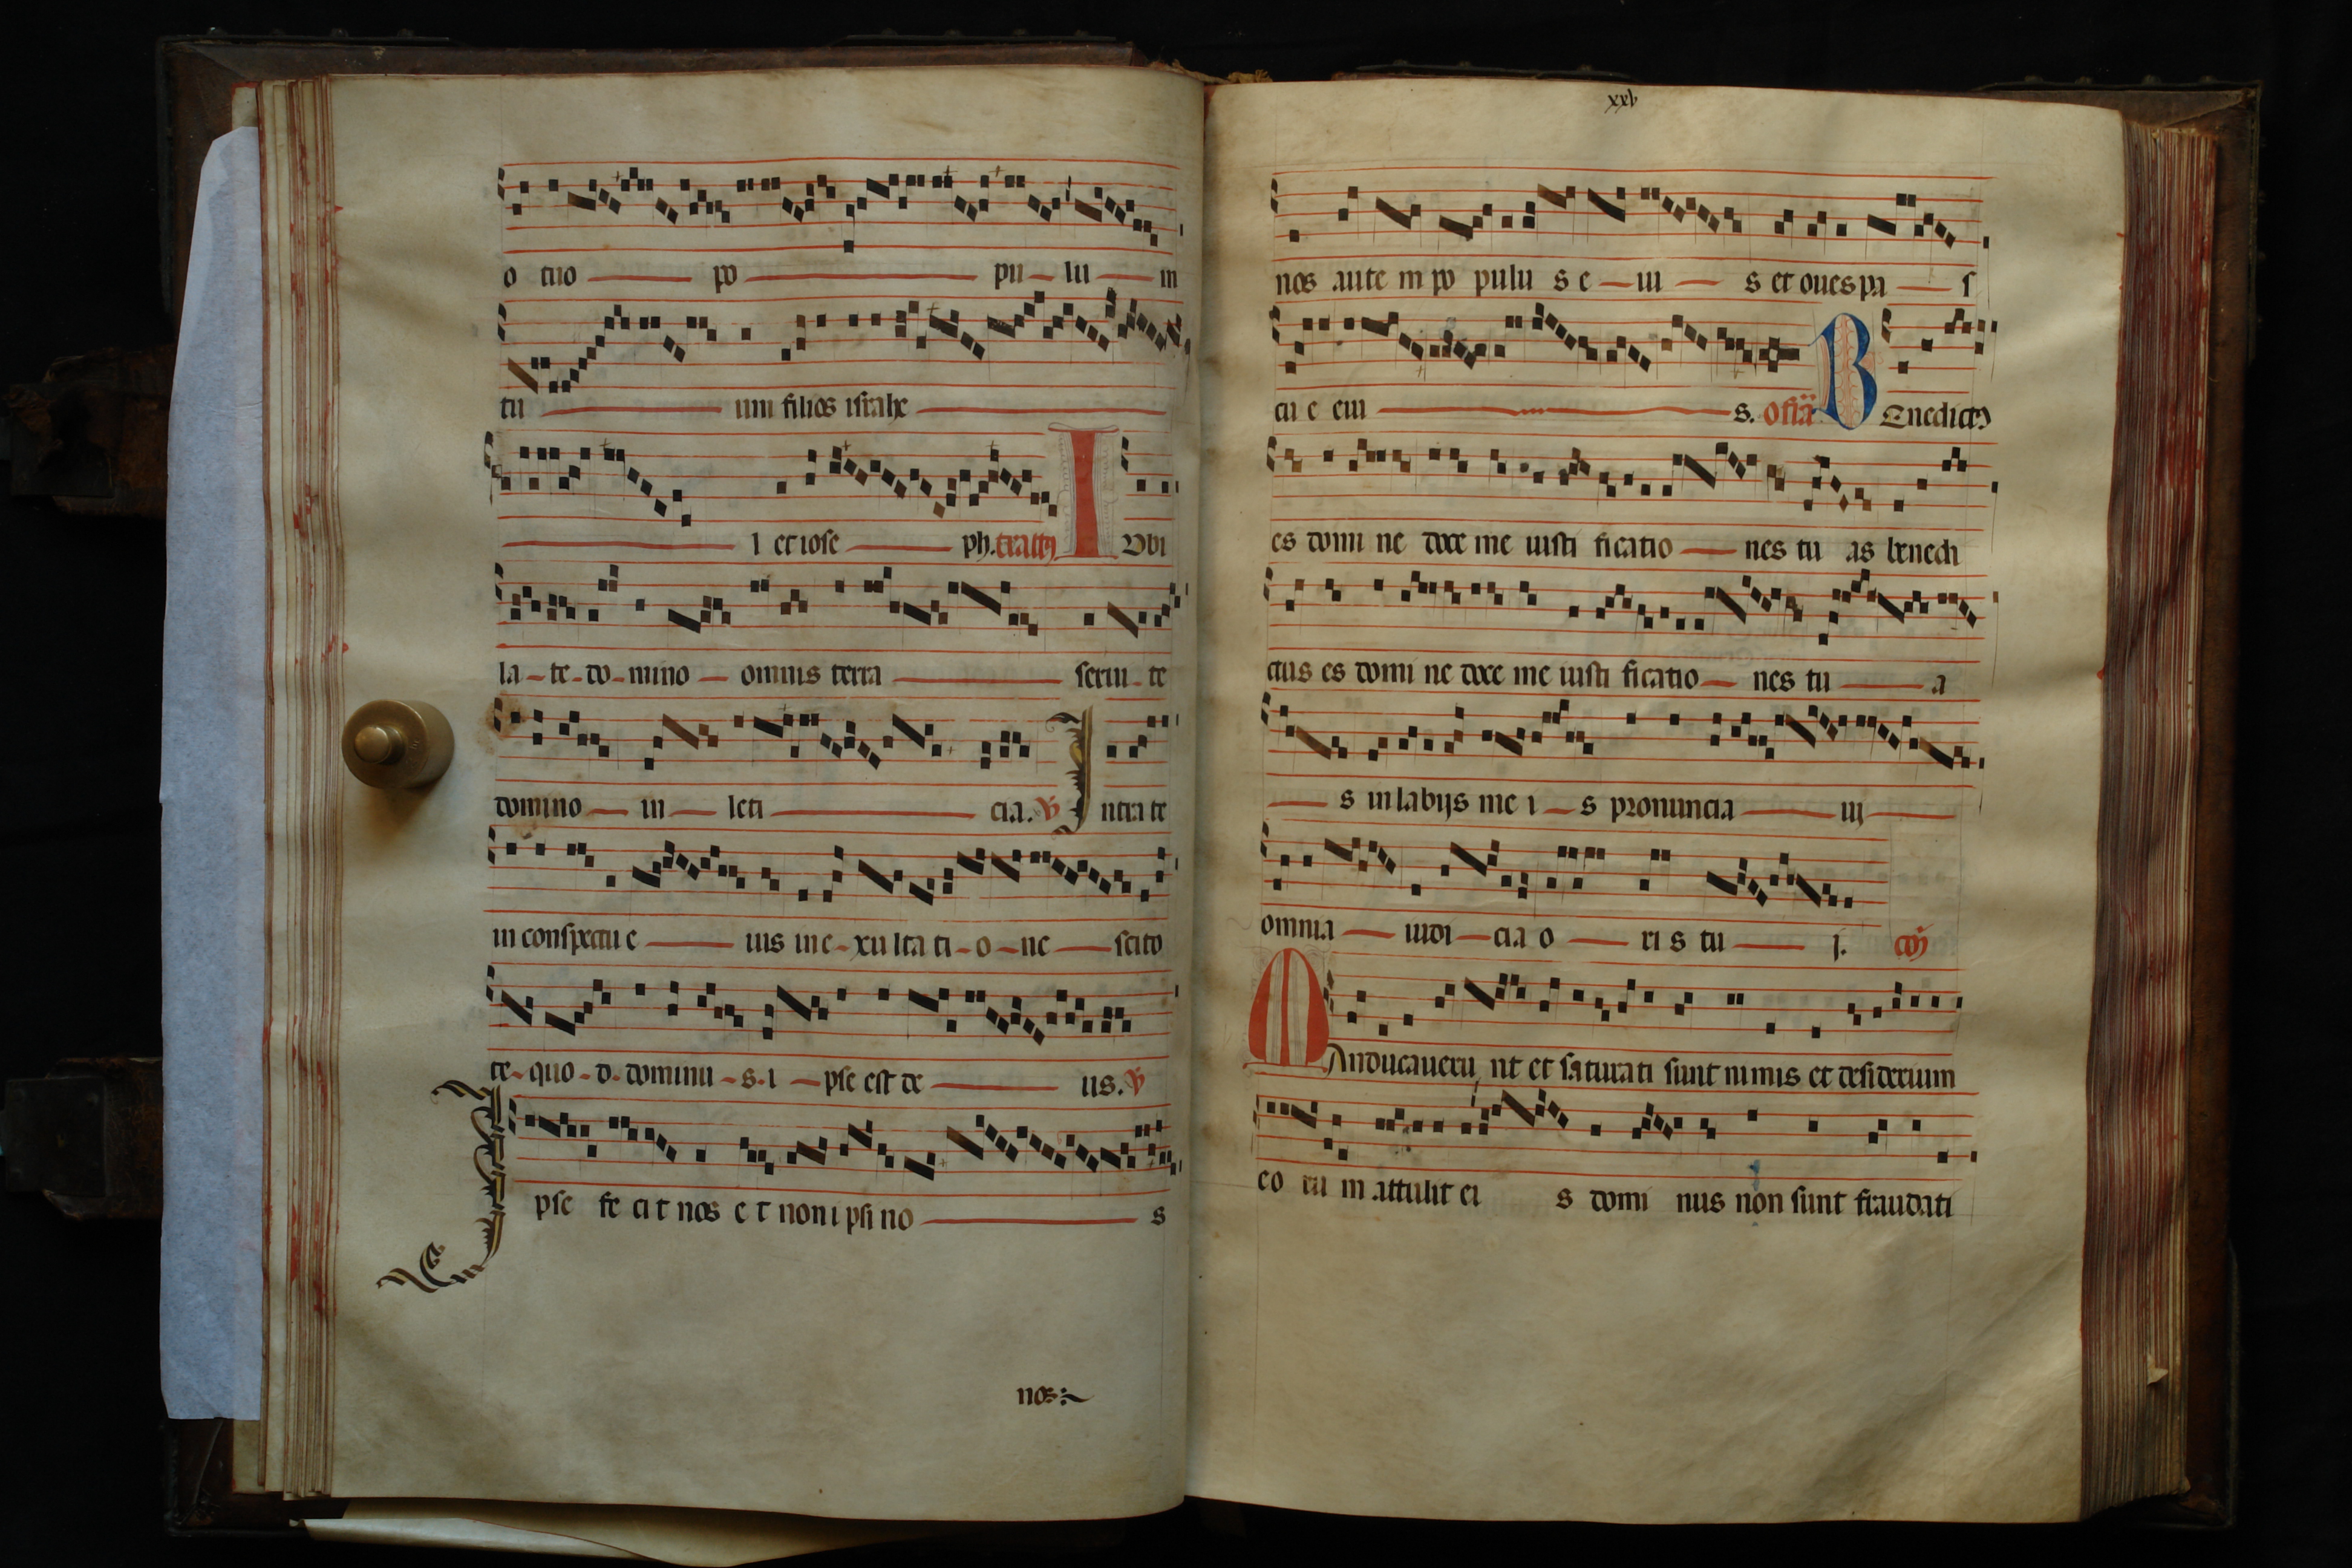 o tuo po pu lu m
tu um filios israhe
l et iose ph. tractus I Vbi
la-te-do-mino omnis terra serui-te
domino in leti cia. V Intra te
in conspectu e ius in e-xulta ti-o-ne scito
te-quo-d-dominu-s-i-pse est de us. V
Ipse fe ci t nos e t non i psi no s
nos:
xxv
nos aute m po pulu s e iu s et oues pa s
cu e eiu s. Offa BEnedictus
es domi ne doce me iusti ficatio nes tu as benedi
ctus es domi ne doce me iusti ficatio nes tu a
s in labijs me i s pronuncia ui
omnia iudi cia o ri s tu j. co
Manducaueru nt et saturati sunt nimis et desiderium
eo ru m attulit ei s domi nus non sunt fraudati